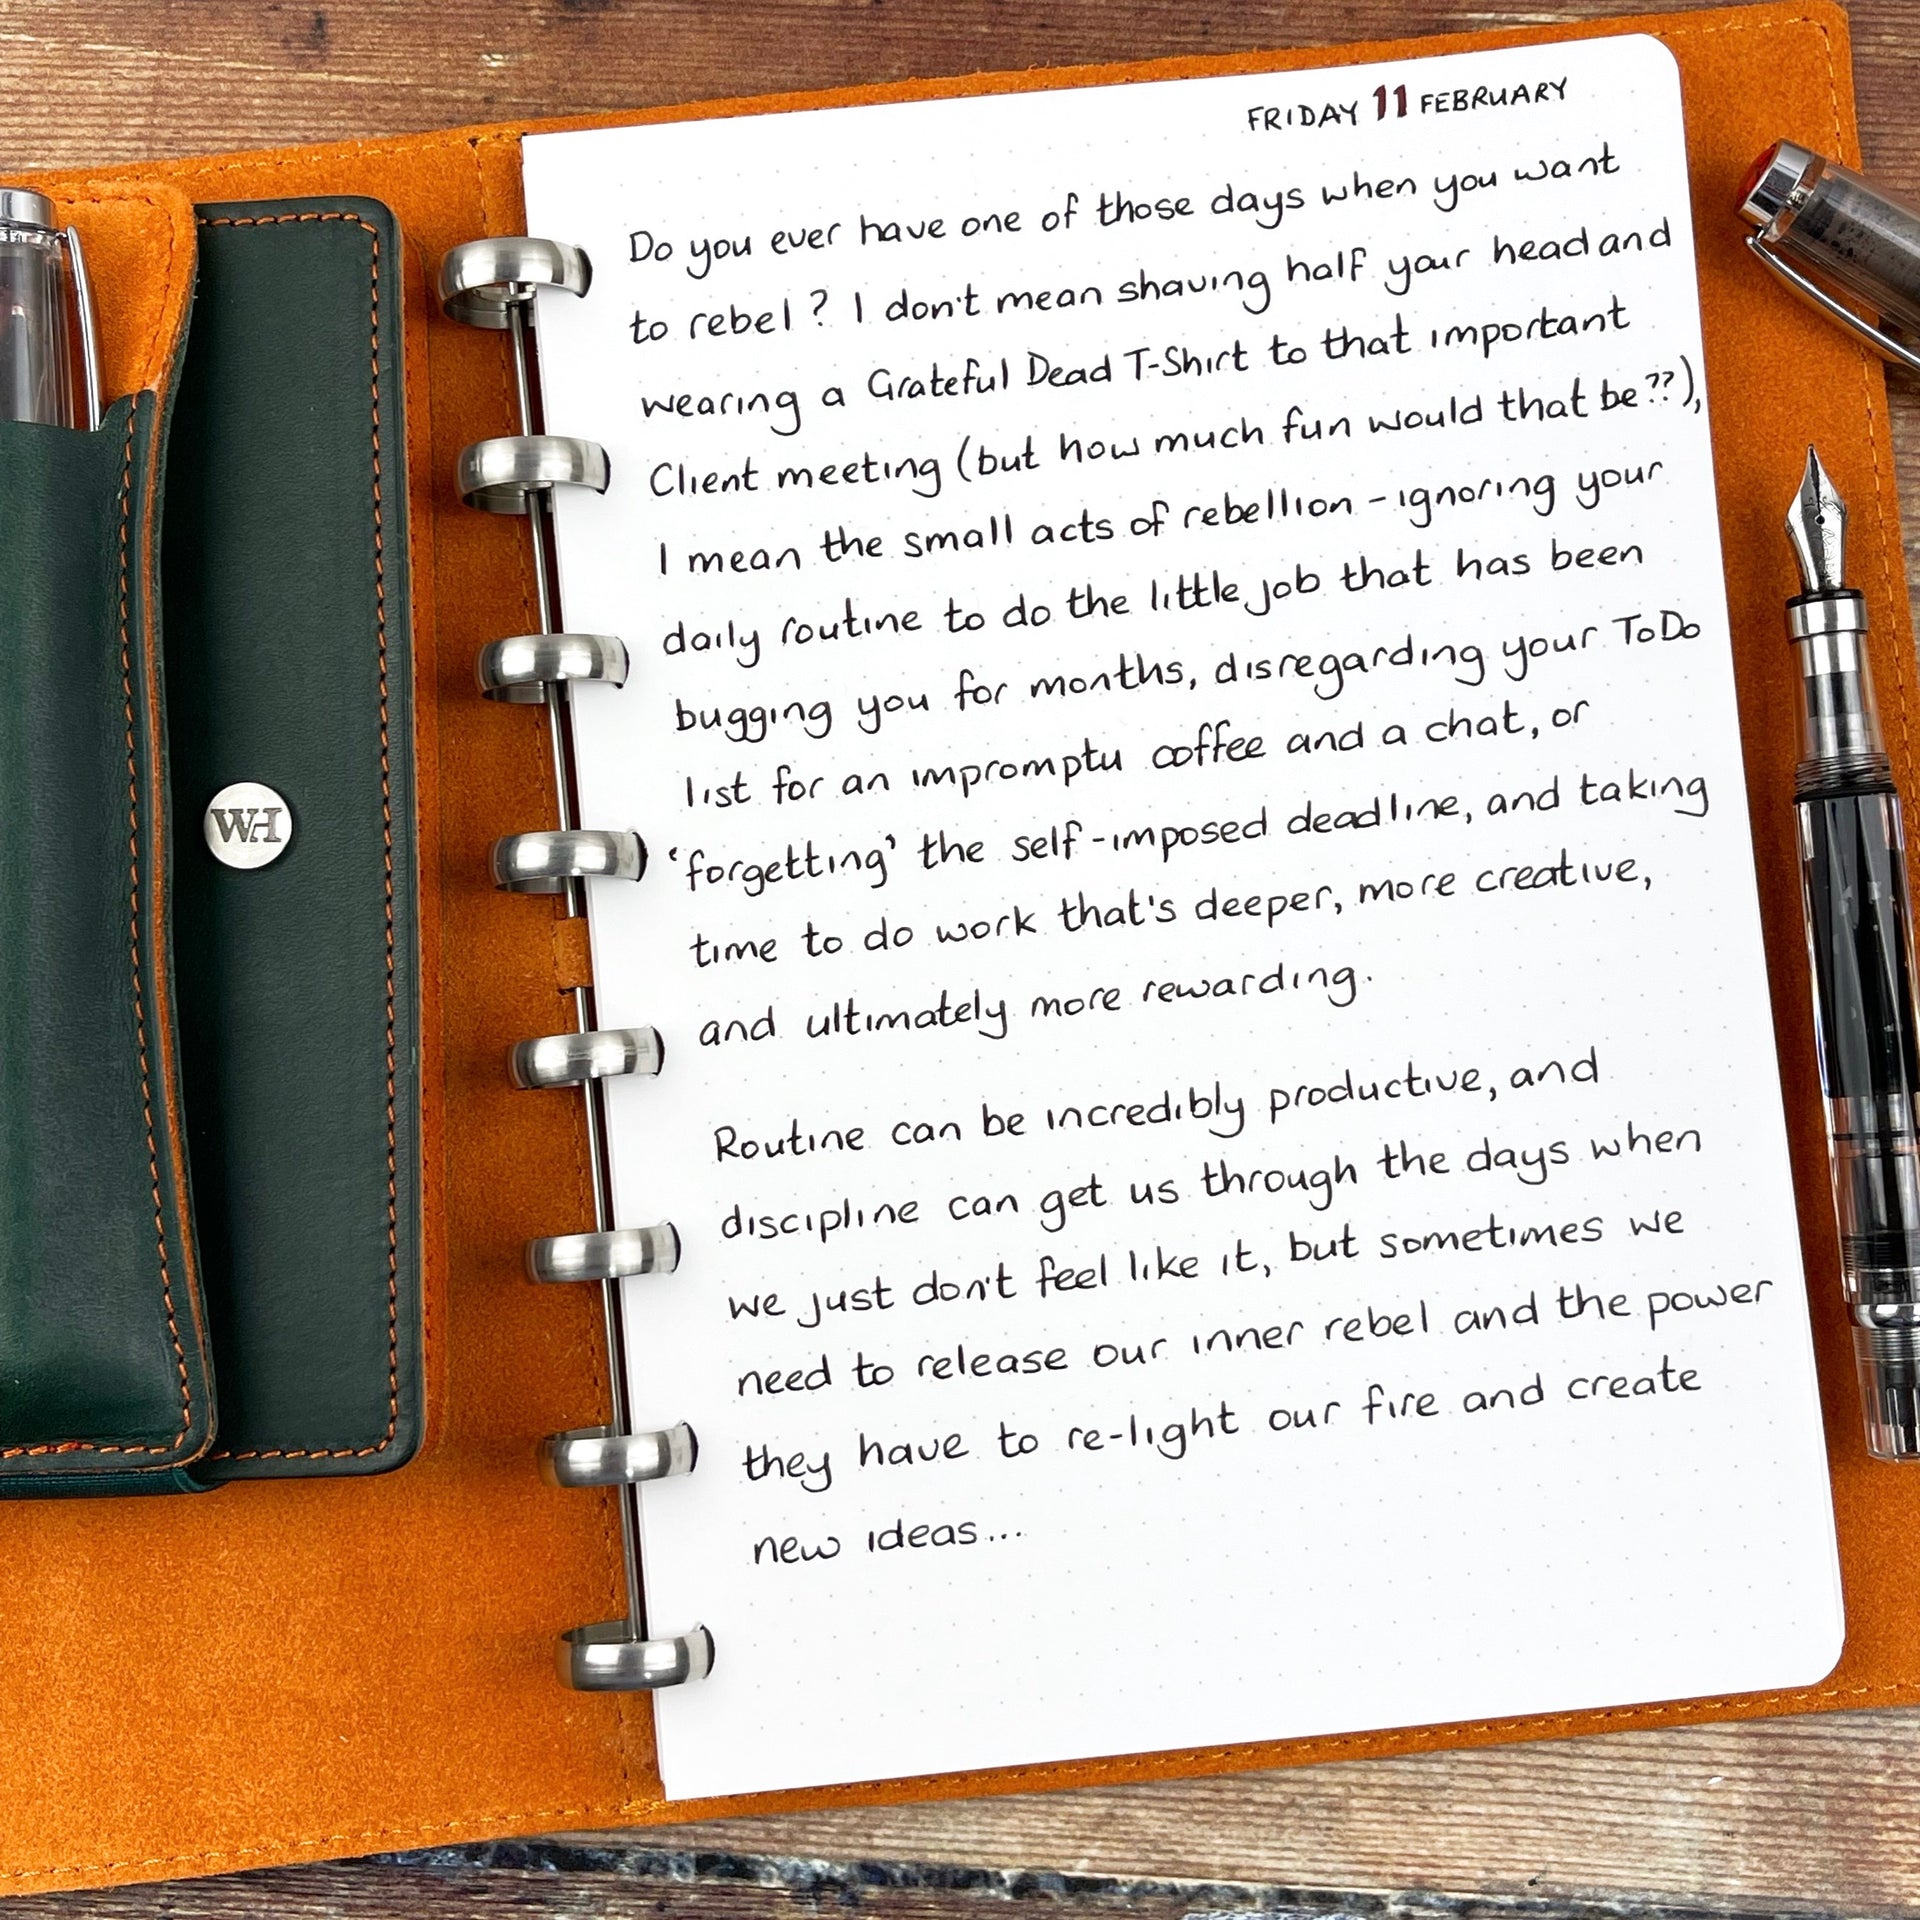 FRIDAY 11 FEBRUARY
Do you ever have one of those days when you want
to rebel? I don't mean shaving half your head and
wearing a Grateful Dead T-Shirt to that important
Client meeting (but how much fun would that be??),
I mean the small acts of rebellion - ignoring your
daily routine to do the little job that has been
bugging you for months, disregarding your ToDo
list for an impromptu coffee and a chat, or
'forgetting' the self-imposed deadline, and taking
time to do work that's deeper, more creative,
and ultimately more rewarding.
Routine can be incredibly productive, and
discipline can get us through the days when
we just don't feel like it, but sometimes we
need to release our inner rebel and the power
they have to re-light our fire and create
new ideas...
WH